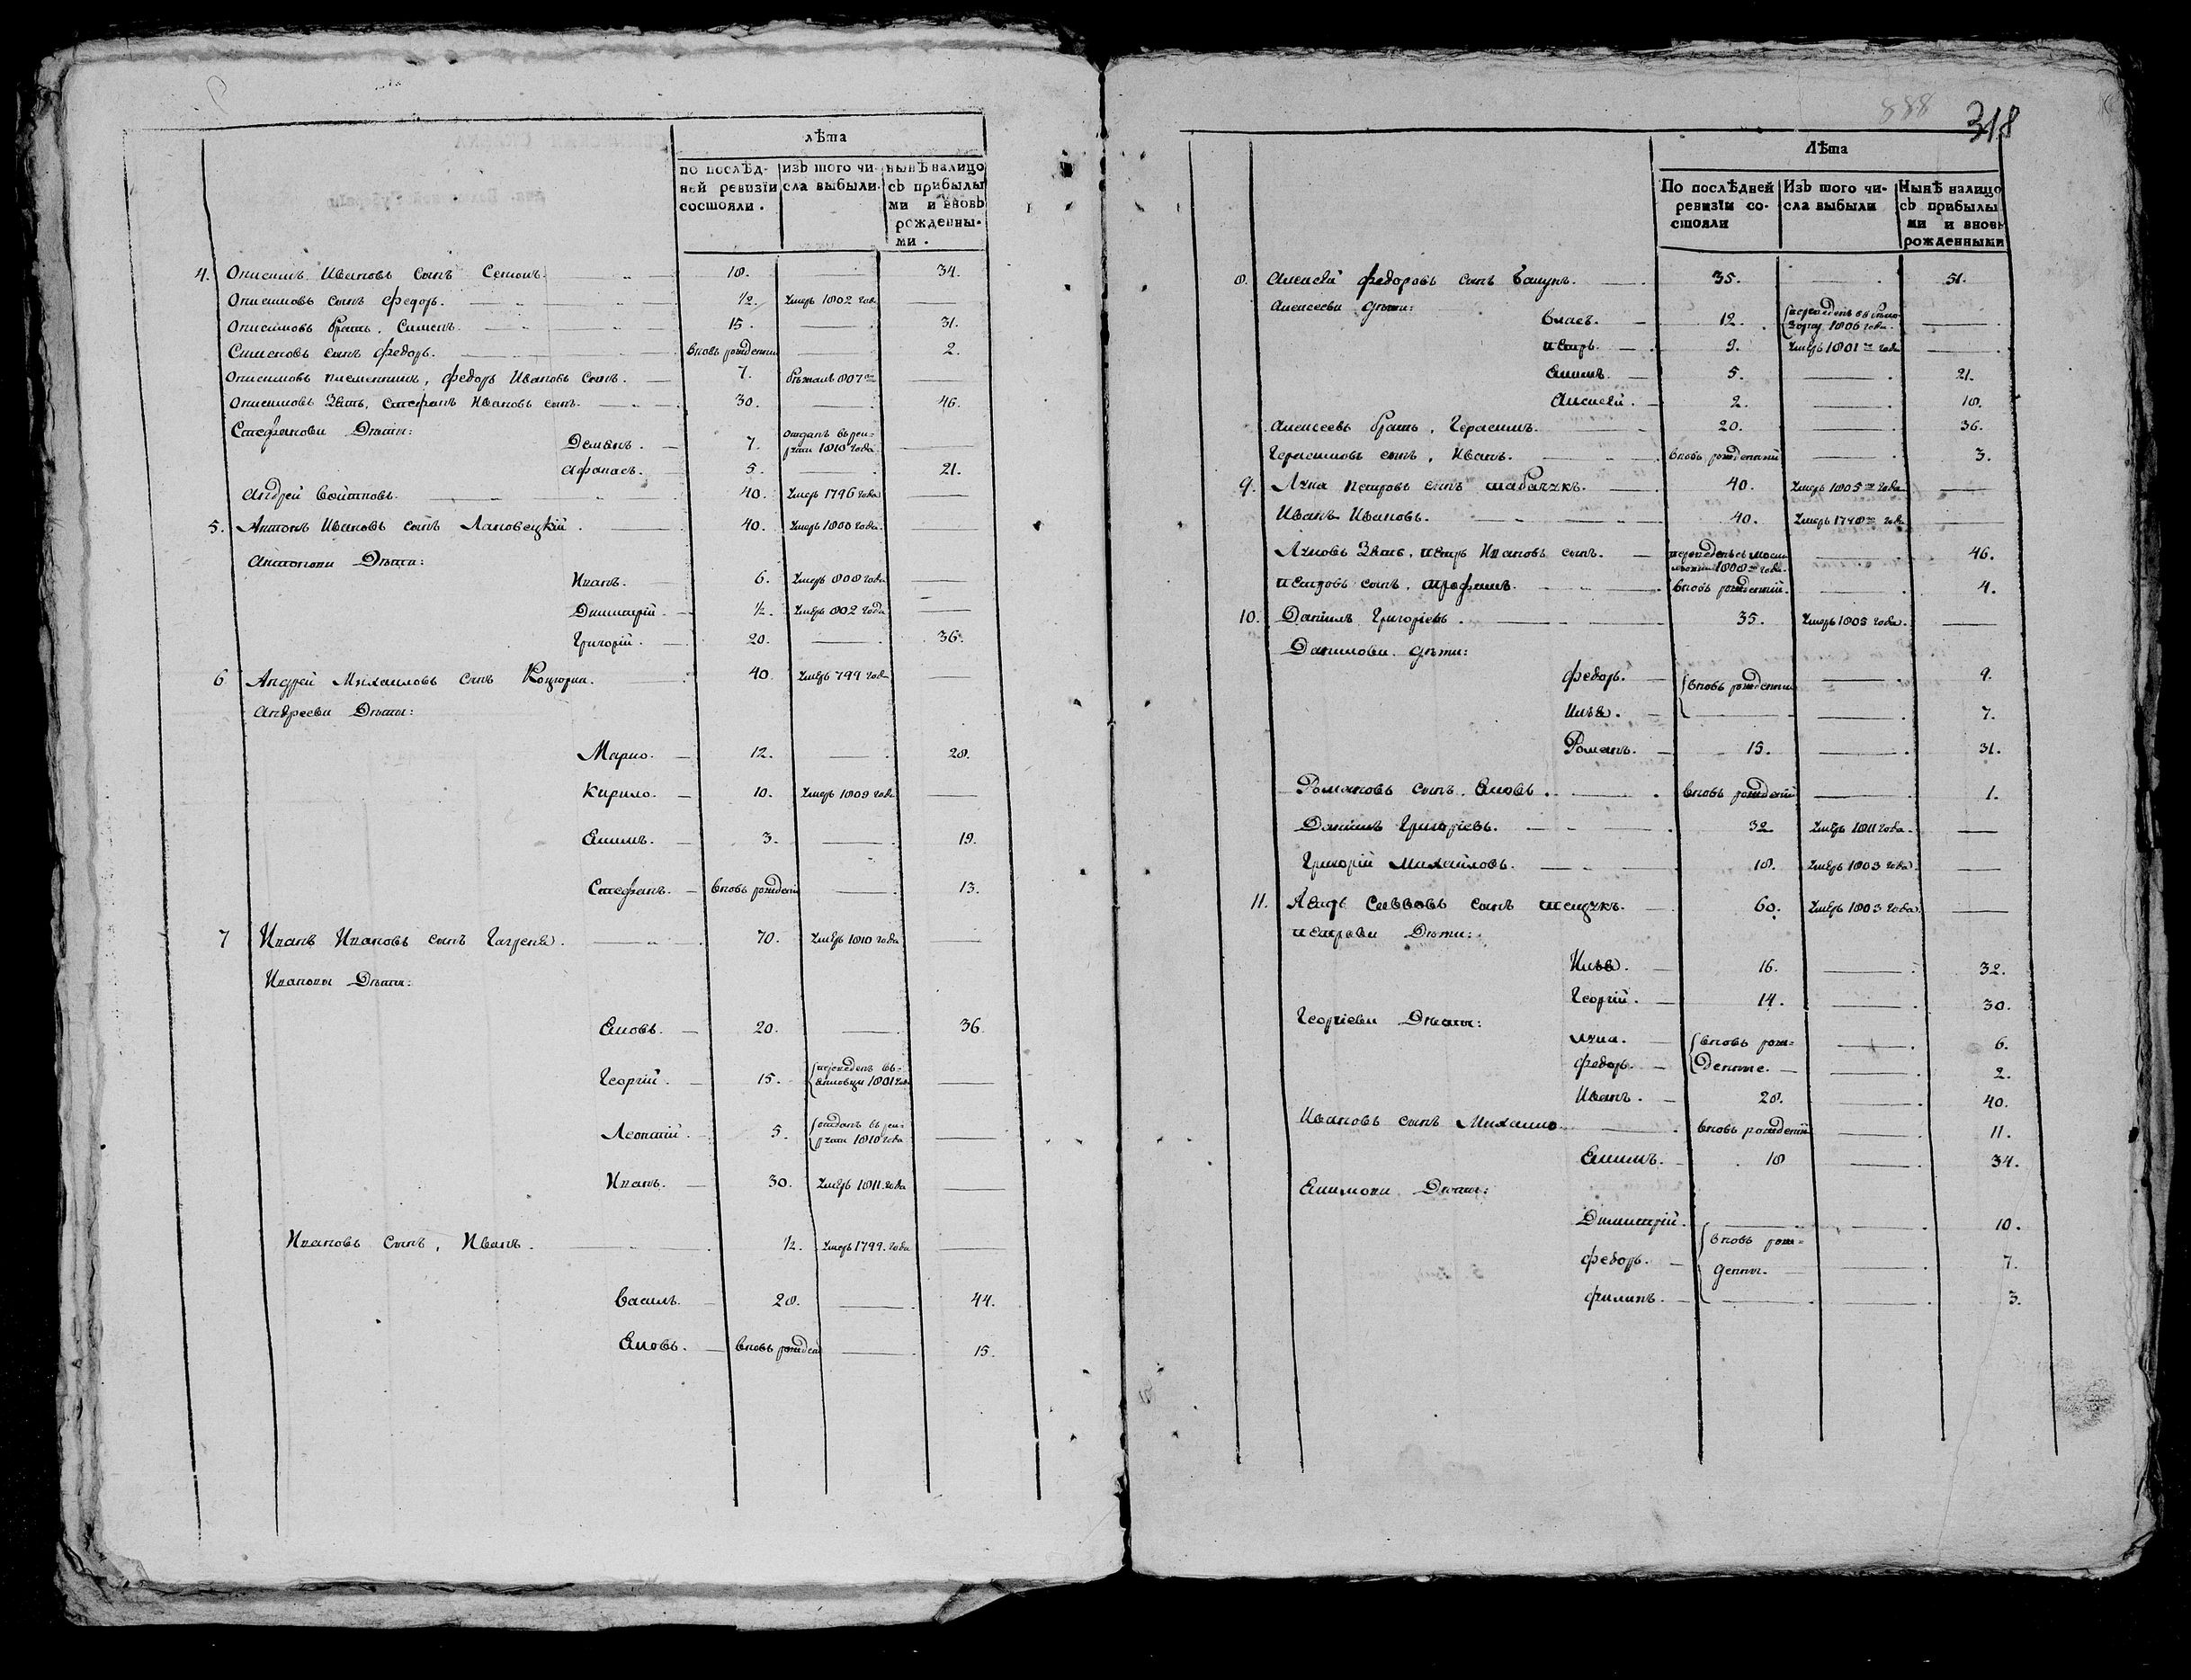 лѣта
по послѣд-
ней ревизіи
состояли.
изъ того чи-
сла выбыли.
нынѣ налицо
съ прибылы
ми и вновь
рожденны-
ми.
4. Онисимъ Ивановъ сынъ 18. 34.
Онисимовъ сынъ Федоръ. ½. умеръ 1802 года
Онисимовъ братъ, Симонъ. 15. 31.
Симоновъ сынъ Федоръ. вновь рожденны 2.
Онисимовъ племенникъ, Федоръ Ивановъ сынъ. 7. бежалъ 807го
Онисимовъ Зять, Стефанъ Ивановъ сынъ. 30. 46.
Стефановы Дѣти:
Демянъ. 7. отданъ въ рек-
рути 1810 года
Афанасъ. 5. 21.
Андрей Войтковъ. 40. умеръ 1796 года
5. Антонъ Ивановъ сынъ Лановецкій. 40. умеръ 1800 года.
Антоновы Дѣти:
Иванъ. 6. умеръ 808 года
Димитрій. ½. умеръ 802 года
Григорій. 20. 36.
6 Андрей Михаиловъ сынъ 40 умеръ 799 года
Андреевы Дѣти:
Марко. 12. 28.
Кирило. 10. умеръ 1809 года
Екимъ. 3. 19.
Стефанъ. вновь рожден 13.
7 Иванъ Ивановъ сынъ 70. умеръ 1810 года
Ивановы Дѣти:
Яковъ. 20. 36.
Георгій. 15. переведенъ въ
1801 года
Леонтій. 5. отданъ въ рек-
рути 1810 года
Иванъ. 30. умеръ 1811. года
Ивановъ сынъ, Иванъ. ½. умеръ 1799. года
Василь. 28. 44.
Яковъ. вновь рожден 15.
888 318
Лѣта
По послѣдней
ревизіи со-
стояли
Изъ того чи-
сла выбыли
Нынѣ налицо
съ прибылы
ми и вновь
рожденными
8. Алексѣй Федоровъ сынъ 35. 51.
Алексеевы дѣти:
Власъ. 12. переведенъ въ
1806 года.
Петръ. 9. умеръ 1801го года
Екимъ. 5. 21.
Алексѣй. 2. 18.
Алексеевъ братъ, Герасимъ. 20. 36.
Герасимовъ сынъ, Иванъ. вновь рожденный 3.
9. Лука Петровъ сынъ 40. умеръ 1805го года
Иванъ Ивановъ. 40. умеръ 1798го года
Луковъ Зять, Петръ Ивановъ сынъ. переведенъ съ
1808го года. 46.
Петровъ сынъ, Трофимъ. вновь рожденній. 4.
10. Данилъ Григоріевъ. 35. умеръ 1805 года.
Даниловы дѣти:
Федоръ. вновь рожденни 9.
Илья. 7.
Романъ. 15. 31.
Романовъ сынъ, Яковъ. вновь рожденій 1.
Данилъ Григоріевъ. 32 умеръ 1811 года.
Григорій Михайловъ. 18. умеръ 1803 года
11. Петръ Савовъ сынъ 60. умеръ 1803 года.
Петровы Дѣти:
Илья. 16. 32.
Георгій. 14. 30.
Георгіевы Дѣти:
Лука. вновь рож- 6.
Федоръ. денные. 2.
Иванъ. 28. 40.
Ивановъ сынъ Михаило вновь рожденій 11.
Екимъ. 18 34.
Екимовы Дѣти:
Димитрій. 10.
вновь рож-
Федоръ. денны. 7.
Филипъ. 3.